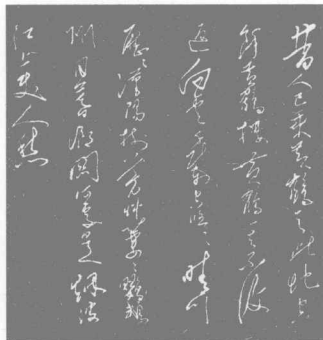 昔人已乘黄鶴去此地空
餘黄鶴樓黄鶴一去不復
返白雲千載空悠々晴川
歷々漢陽樹芳草萋々鸚鵡
洲日暮鄉關何處是煙波
江上使人愁